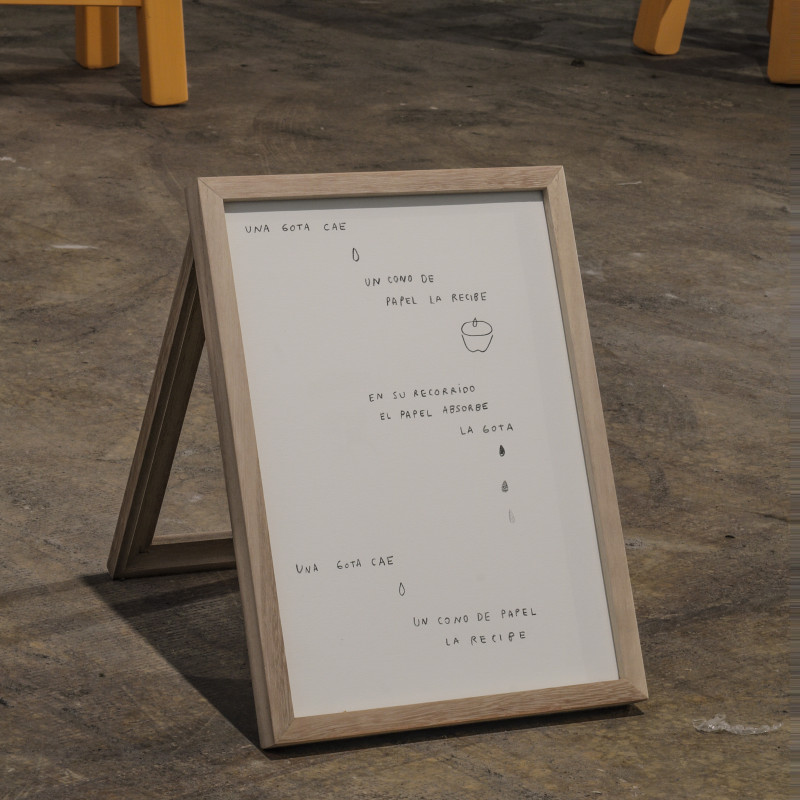 UNA GOTA CAE
UN CONO DE
PAPEL LA RECIBE
EN SU RECORRIDO
EL PAPEL ABSORBE
LA GOTA
UNA GOTA CAE
UN CONO DE PAPEL
LA RECIBE